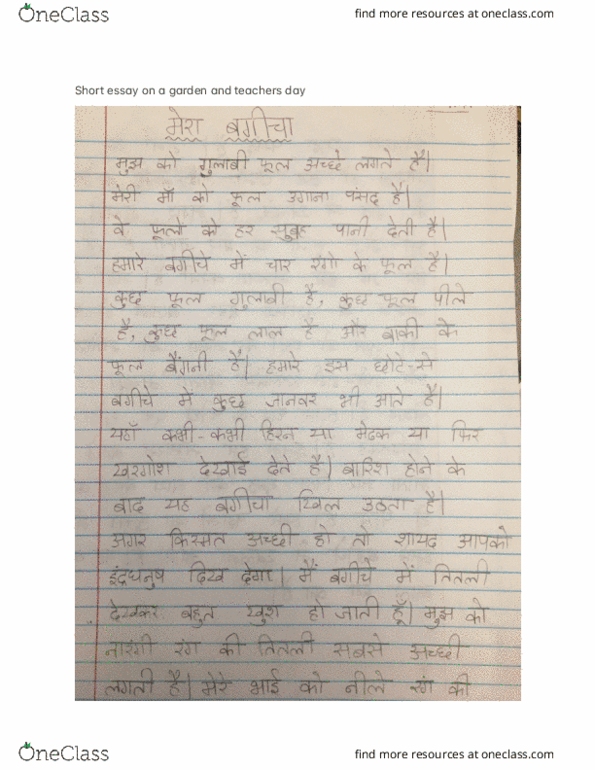 OneClass
find more resources at oneclass.com
Short essay on a garden and teachers day
मेरा बगीचा
मुझ को गुलाबी फूल अच्छे लगते है।
मेरी माँ को फूल उगाना पंसद है।
वे फूलो को हर सुबह पानी देती है।
हमारे बगीचे में चार रंगो के फूल है।
कुछ फूल गुलाबी है, कुछ फूल पीले
है, कुछ फूल लाल है और बाकी के
फूल बैंगनी है। हमारे इस छोटे-से
बगीचे में कुछ जानवर भी आते है।
यहाँ कभी-कभी हिरन या मेंढक या फिर
खरगोश देखाई देते है। बारिश होने के
बाद यह बगीचा खिल उठता है।
अगर किस्मत अच्छी हो तो शायद आपको
इंद्रधनुष दिख देगा। मैं बगीचे में तितली
देखकर बहुत खुश हो जाती हूँ। मुझ को
नारंगी रंग की तितली सबसे अच्छी
लगती है। मेरे भाई को नीले रंग की
OneClass
find more resources at oneclass.com